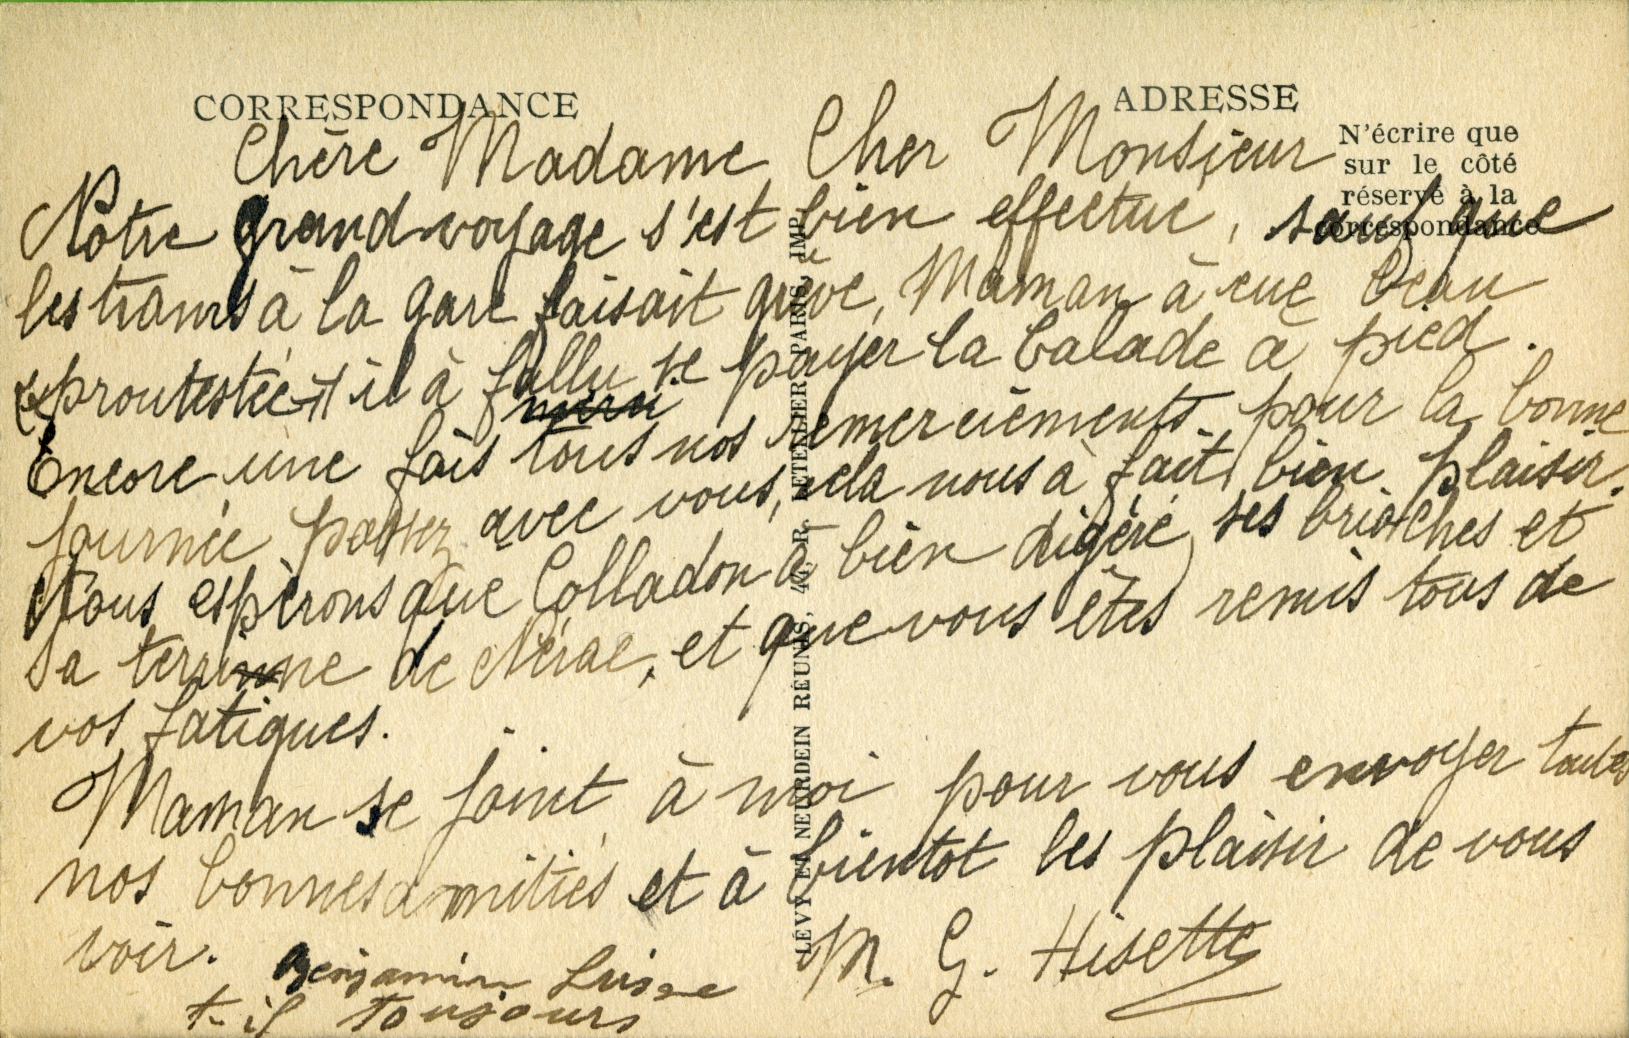 CORRESPONDANCE
ADRESSE
N'écrire que
sur le côté
réservé à la
correspondance
Chère Madame, Cher Monsieur
Notre grand voyage s'est bien effectué, sauf que
les trams à la gare faisait grève, Maman à eue beau
proutestée il à fallu se payer la balade à pied.
Encore une fois tous nos remerciements pour la bonne
journée passez avec vous, cela nous à fait bien plaisir.
Nous espérons que Colladon à bien digéré ses brioches et
sa terrine de Nérac, et que vous êtes remis tous de
vos fatigues.
Maman se joint à moi pour vous envoyer toutes
nos bonnes amitiés et à bientot les plaisir de vous
voir.
M. G. Hisette
Benjamin
t-il toujours
LÉVY ET NEURDEIN RÉUNIS, 44, R. LETELLIER, PARIS, IMP.